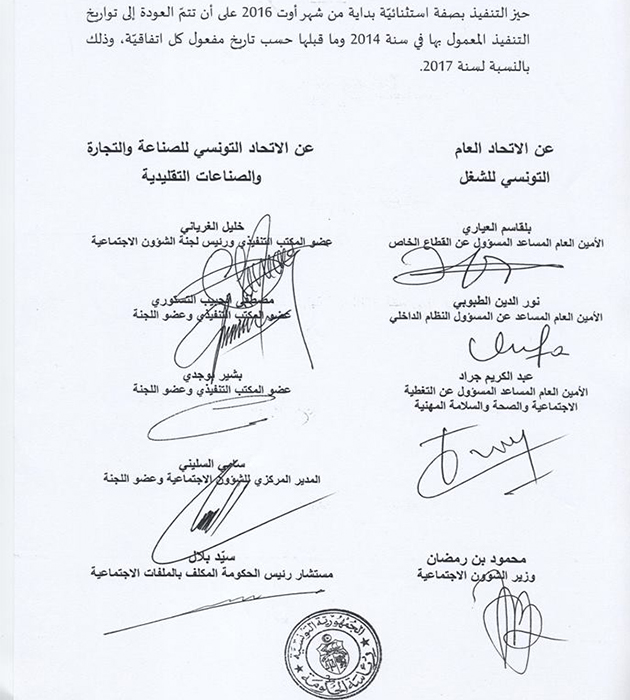 حيز التنفيذ بصفة استثنائيّة بداية من شهر أوت 2016 على أن تتمّ العودة إلى تواريخ
التنفيذ المعمول بها في سنة 2014 وما قبلها حسب تاريخ مفعول كل اتفاقيّة، وذلك
بالنسبة لسنة 2017.
عن الاتحاد العام
التونسي للشغل
بلقاسم العياري
الأمين العام المساعد المسؤول عن القطاع الخاص
نور الدين الطبوبي
الأمين العام المساعد عن المسؤول النظام الداخلي
عبد الكريم جراد
الأمين العام المساعد المسؤول عن التغطية
الاجتماعية والصحة والسلامة المهنية
محمود بن رمضان
وزير الشؤون الاجتماعية
عن الاتحاد التونسي للصناعة والتجارة
والصناعات التقليدية
خليل الغرياني
عضو المكتب التنفيذي ورئيس لجنة الشؤون الاجتماعية
مصطفى الحبيب التستوري
عضو المكتب التنفيذي وعضو اللجنة
بشير بوجدي
عضو المكتب التنفيذي وعضو اللجنة
سامي السليني
المدير المركزي للشؤون الاجتماعية وعضو اللجنة
سيّد بلال
مستشار رئيس الحكومة المكلف بالملفات الاجتماعية
الجمهورية التونسية
رئاسة الحكومة